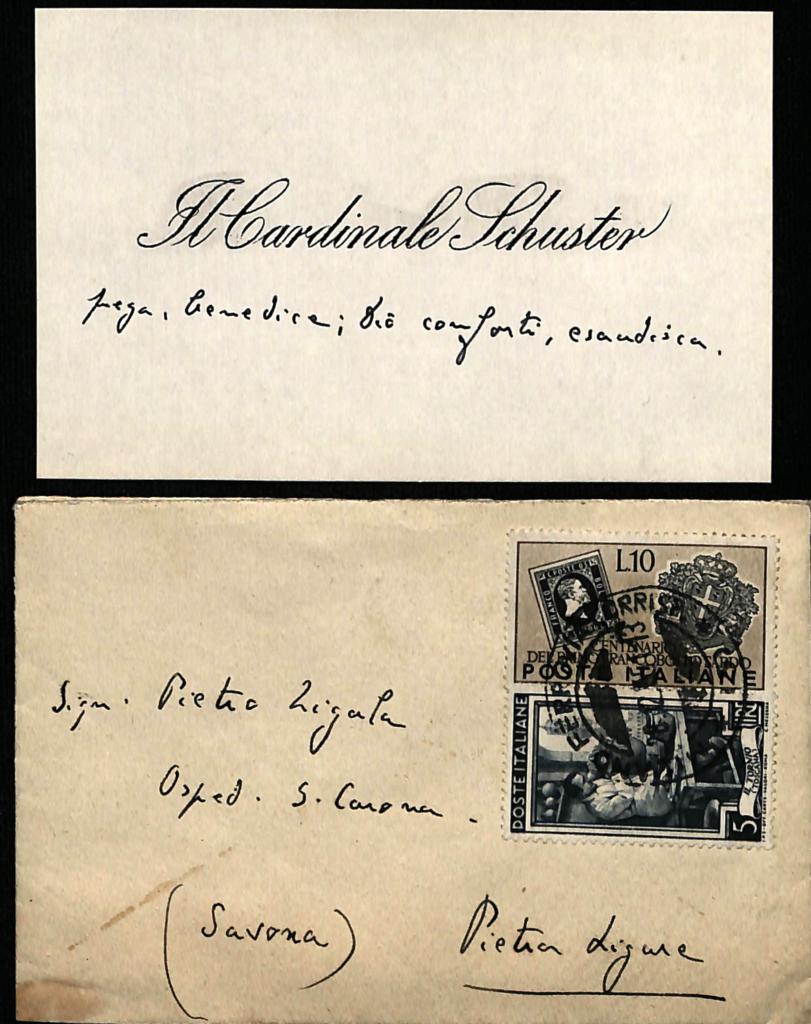 Il Cardinale Schuster
prega, benedice; Dio conforti, esaudisca.
L.10
CENTENARIO
DEL PRIMO FRANCOBOLLO SARDO
POSTE ITALIANE
POSTE ITALIANE
5
Sign. Pietro Zigala
Osped. S. Corona.
(Savona)
Pietra Ligure